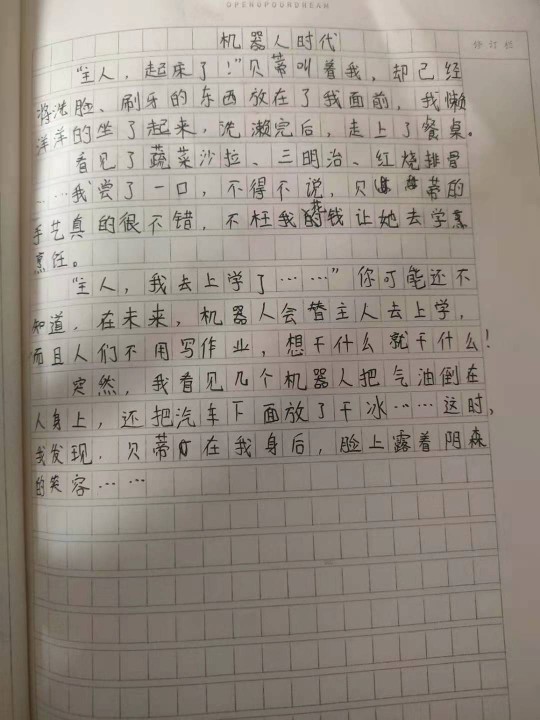 OPENUPOURDREAM
机器人时代
修订栏
“主人，起床了！”贝蒂叫着我，却已经
将洗脸、刷牙的东西放在了我面前，我懒
洋洋的坐了起来，洗漱完后，走上了餐桌。
看见了蔬菜沙拉、三明治、红烧排骨
……我尝了一口，不得不说，贝蒂的
手艺真的很不错，不枉我花钱让她去学烹
烹饪。
“主人，我去上学了……”你可能还不
知道，在未来，机器人会替主人去上学，
而且人们不用写作业，想干什么就干什么！
突然，我看见几个机器人把气油倒在
人身上，还把汽车下面放了干冰……这时，
我发现，贝蒂在我身后，脸上露着阴森
的笑容……